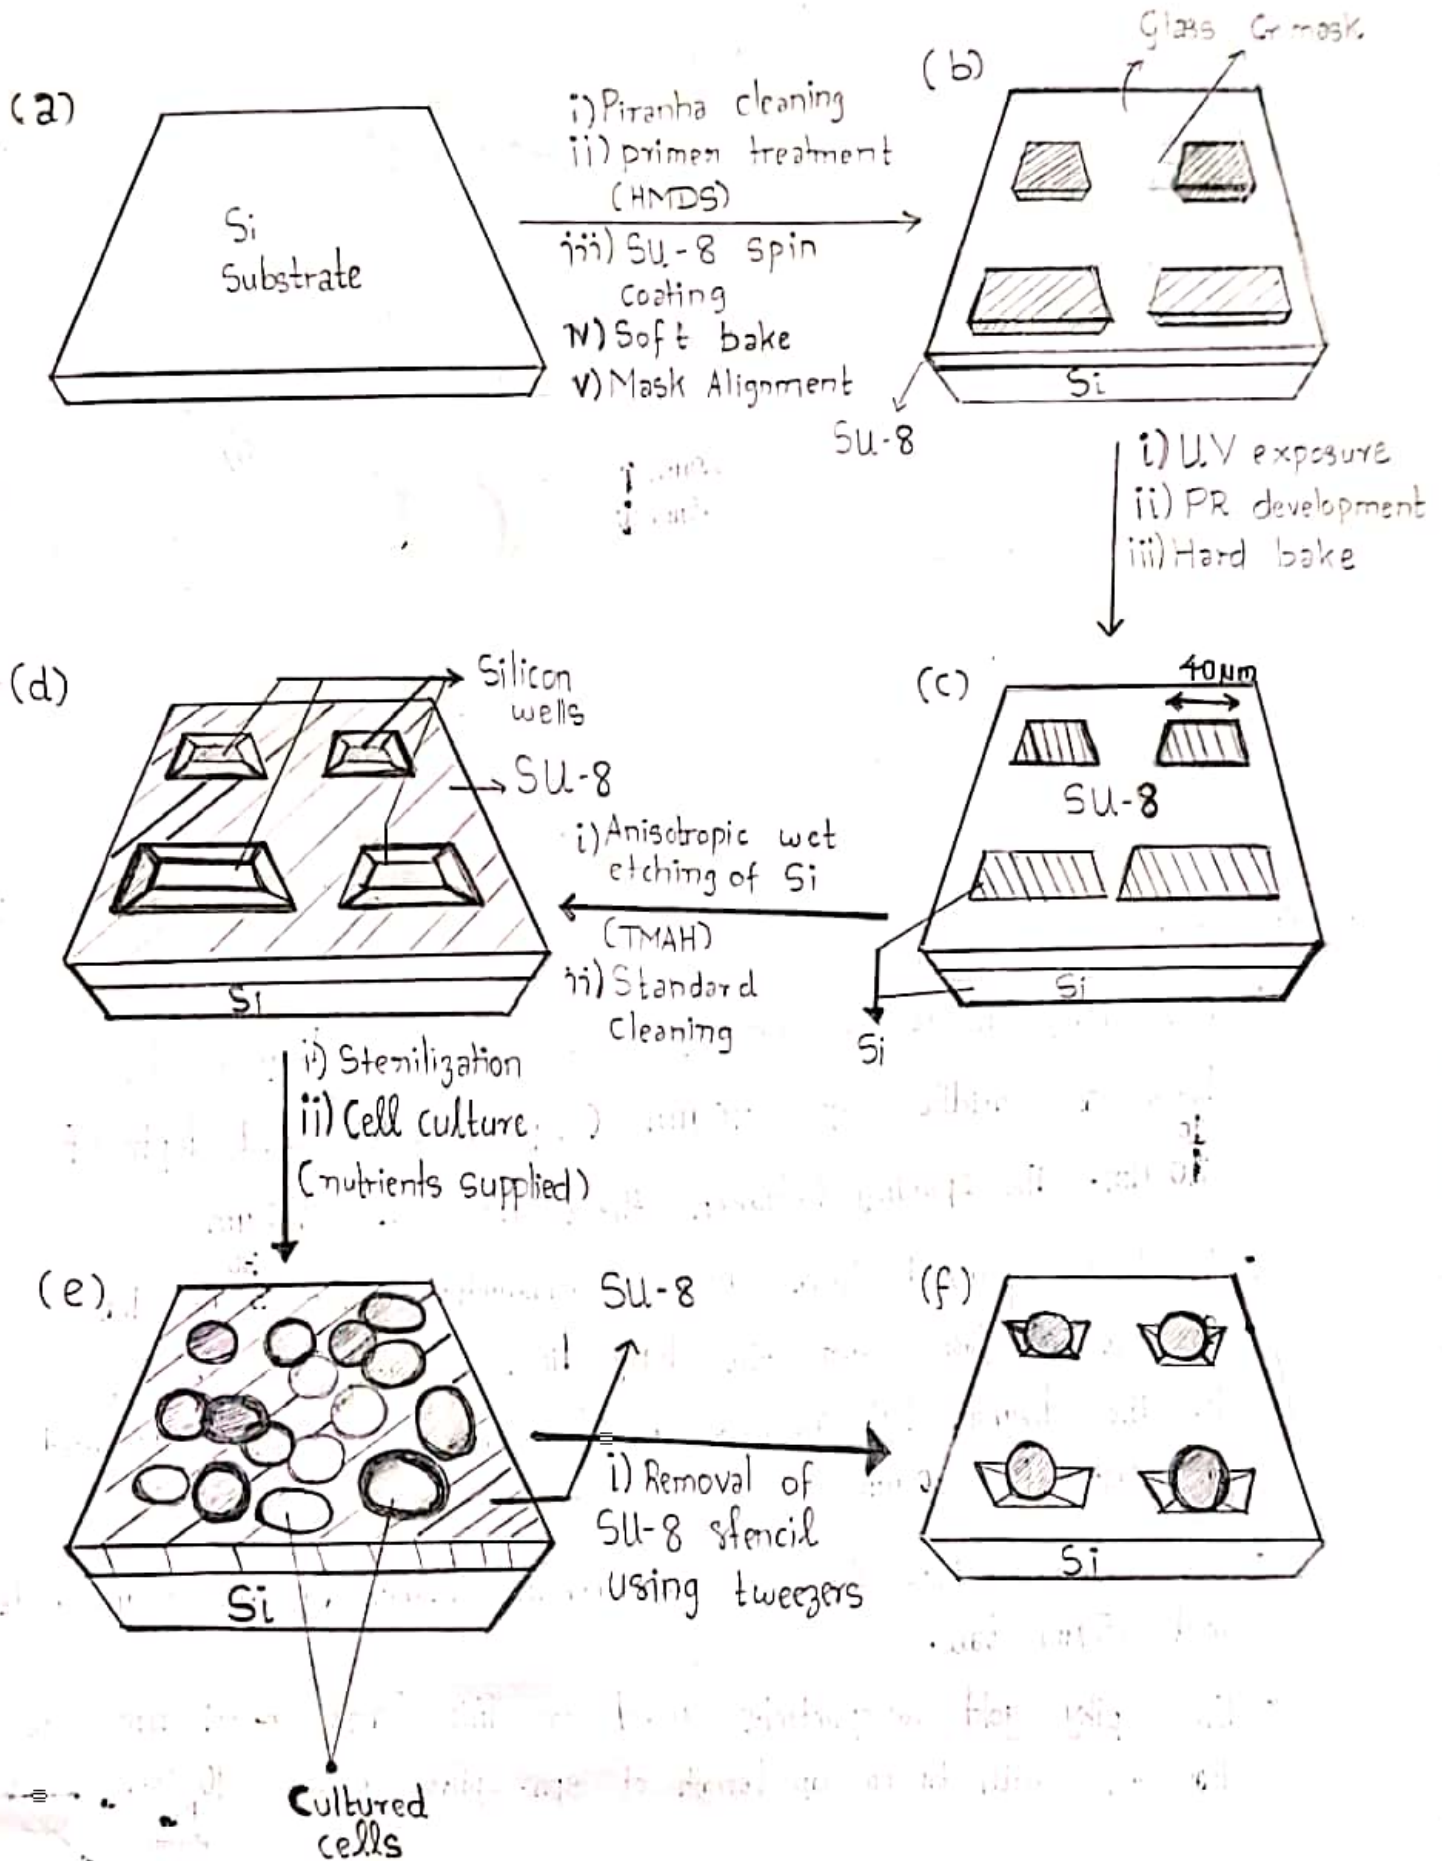 (a)
Si
Substrate
i) Piranha cleaning
ii) primer treatment
(HMDS)
iii) SU-8 spin
coating
iv) Soft bake
v) Mask Alignment
(b)
Glass Cr mask
Si
SU-8
i) U.V exposure
ii) PR development
iii) Hard bake
(c)
40μm
SU-8
Si
Si
i) Anisotropic wet
etching of Si
(TMAH)
ii) Standard
Cleaning
(d)
Silicon
wells
SU-8
Si
i) Sterilization
ii) Cell culture
(nutrients supplied)
(e)
SU-8
Si
Cultured
cells
i) Removal of
SU-8 stencil
using tweezers
(f)
Si